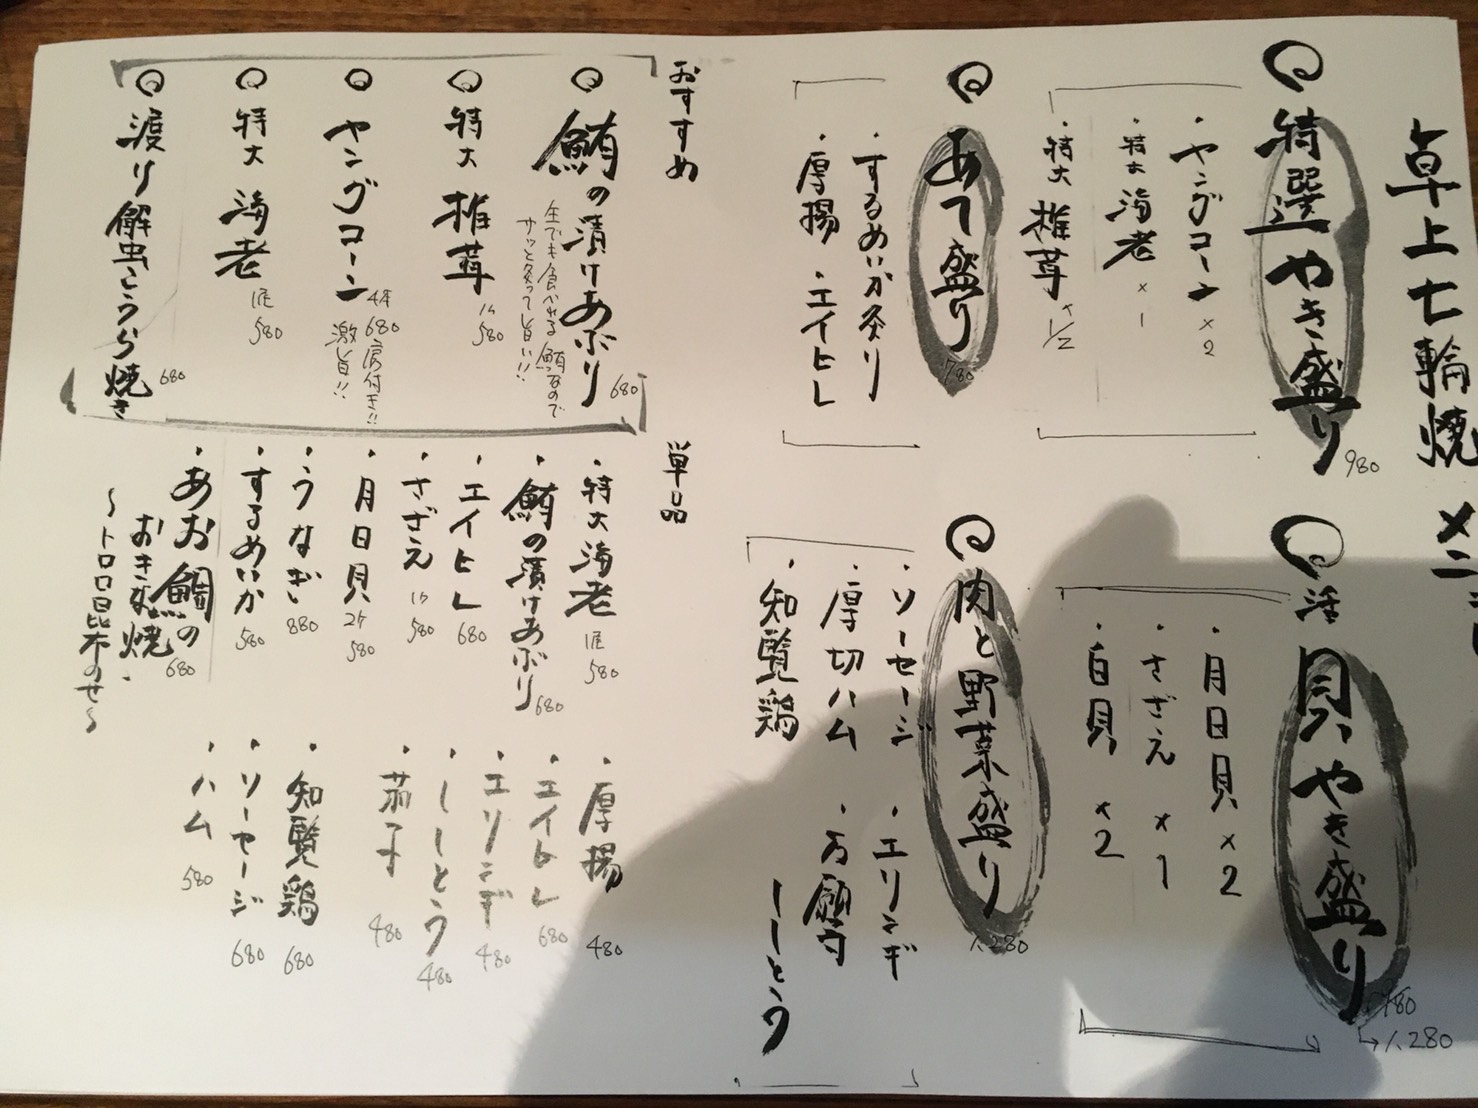 卓上七輪焼
特選やき盛り 980
・ヤングコーン×2
・特大海老×1
・特大椎茸×1/2
あて盛り 780
・するめいか炙り
・厚揚・エイヒレ
活貝やき盛り 780
→1.280
・月日貝×2
・さざえ×1
・白貝×2
肉と野菜盛り 1.280
・ソーセージ・エリンギ
・厚切ハム
・知覧鶏 ししとう
おすすめ
鮪の漬けあぶり 680
生でも食べれる鮪なので
サッと炙って旨い!!
特大椎茸 1ケ 580
ヤングコーン 4本 680
激旨!!
特大海老 1尾 580
渡り蟹こうら焼き 680
単品
・特大海老 1尾 580
・鮪の漬けあぶり 680
・エイヒレ 680
・さざえ 1ケ 580
・月日貝 2ケ 580
・うなぎ 880
・するめいか 580
・あお鯛の 680
〜トロロ昆布のせ〜
・厚揚 480
・エイヒレ 680
・エリンギ 480
・ししとう 480
・茄子 480
・知覧鶏 680
・ソーセージ 680
・ハム 580